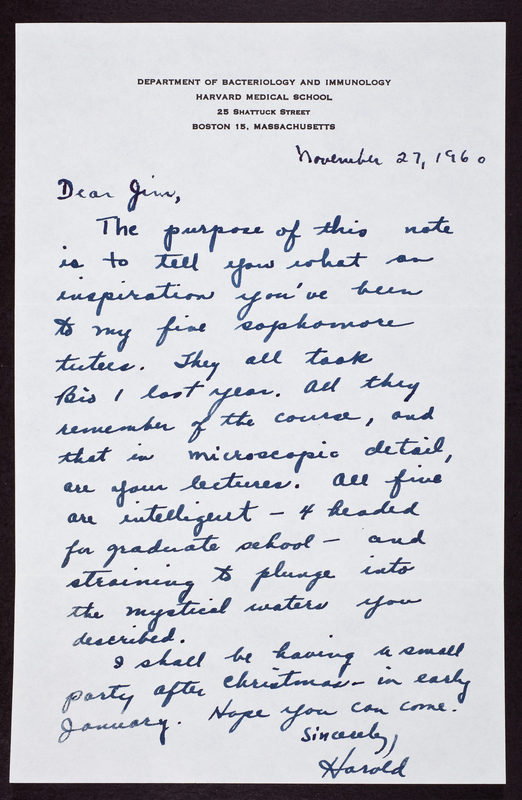 DEPARTMENT OF BACTERIOLOGY AND IMMUNOLOGY
HARVARD MEDICAL SCHOOL
25 SHATTUCK STREET
BOSTON 15, MASSACHUSETTS
November 27, 1960
Dear Jim,
The purpose of this note
is to tell you what an
inspiration you've been
to my five sophomore
tutees. They all took
Bio 1 last year. All they
remember of the course, and
that in microscopic detail,
are your lectures. All five
are intelligent - 4 headed
for graduate school - and
straining to plunge into
the mystical waters you
described.
I shall be having a small
party after Christmas - in early
January. Hope you can come.
Sincerely,
Harold